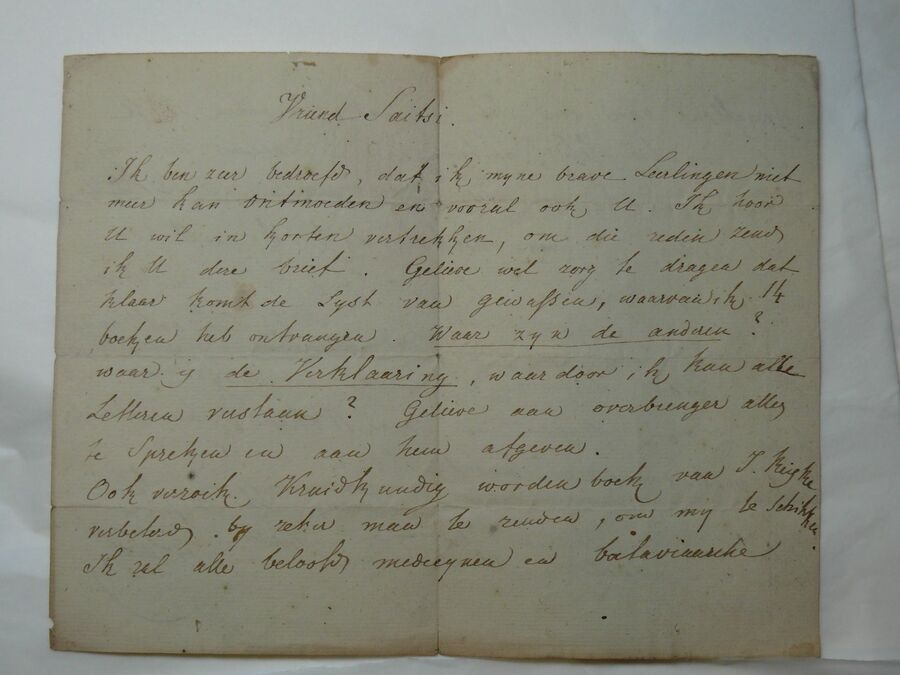 Vriend Saitsi.
Ik ben zeer bedroefd, dat ik myne brave Leerlingen niet
meer kan ontmoeden en vooral ook U. Ik hoor
U wil in korten vertrekken, om die reden zend
ik U dese brief. Gelieve wel zorg te dragen dat
klaar komt de Lyst van gewassen, waarvan ik 14
boeken heb ontvangen. Waar zyn de anderen?
waar is de Verklaaring, waardoor ik kan alle
Letteren verstaan? Gelieve aan overbrenger alles
te Spreken en aan hem afgeven.
Ook verzoek Kruidkundig woorden boek van J. Keiske
verbeterd by zeker man te zenden, om my te Schikken.
Ik zal alle beloofd medecynen en bataviaasche